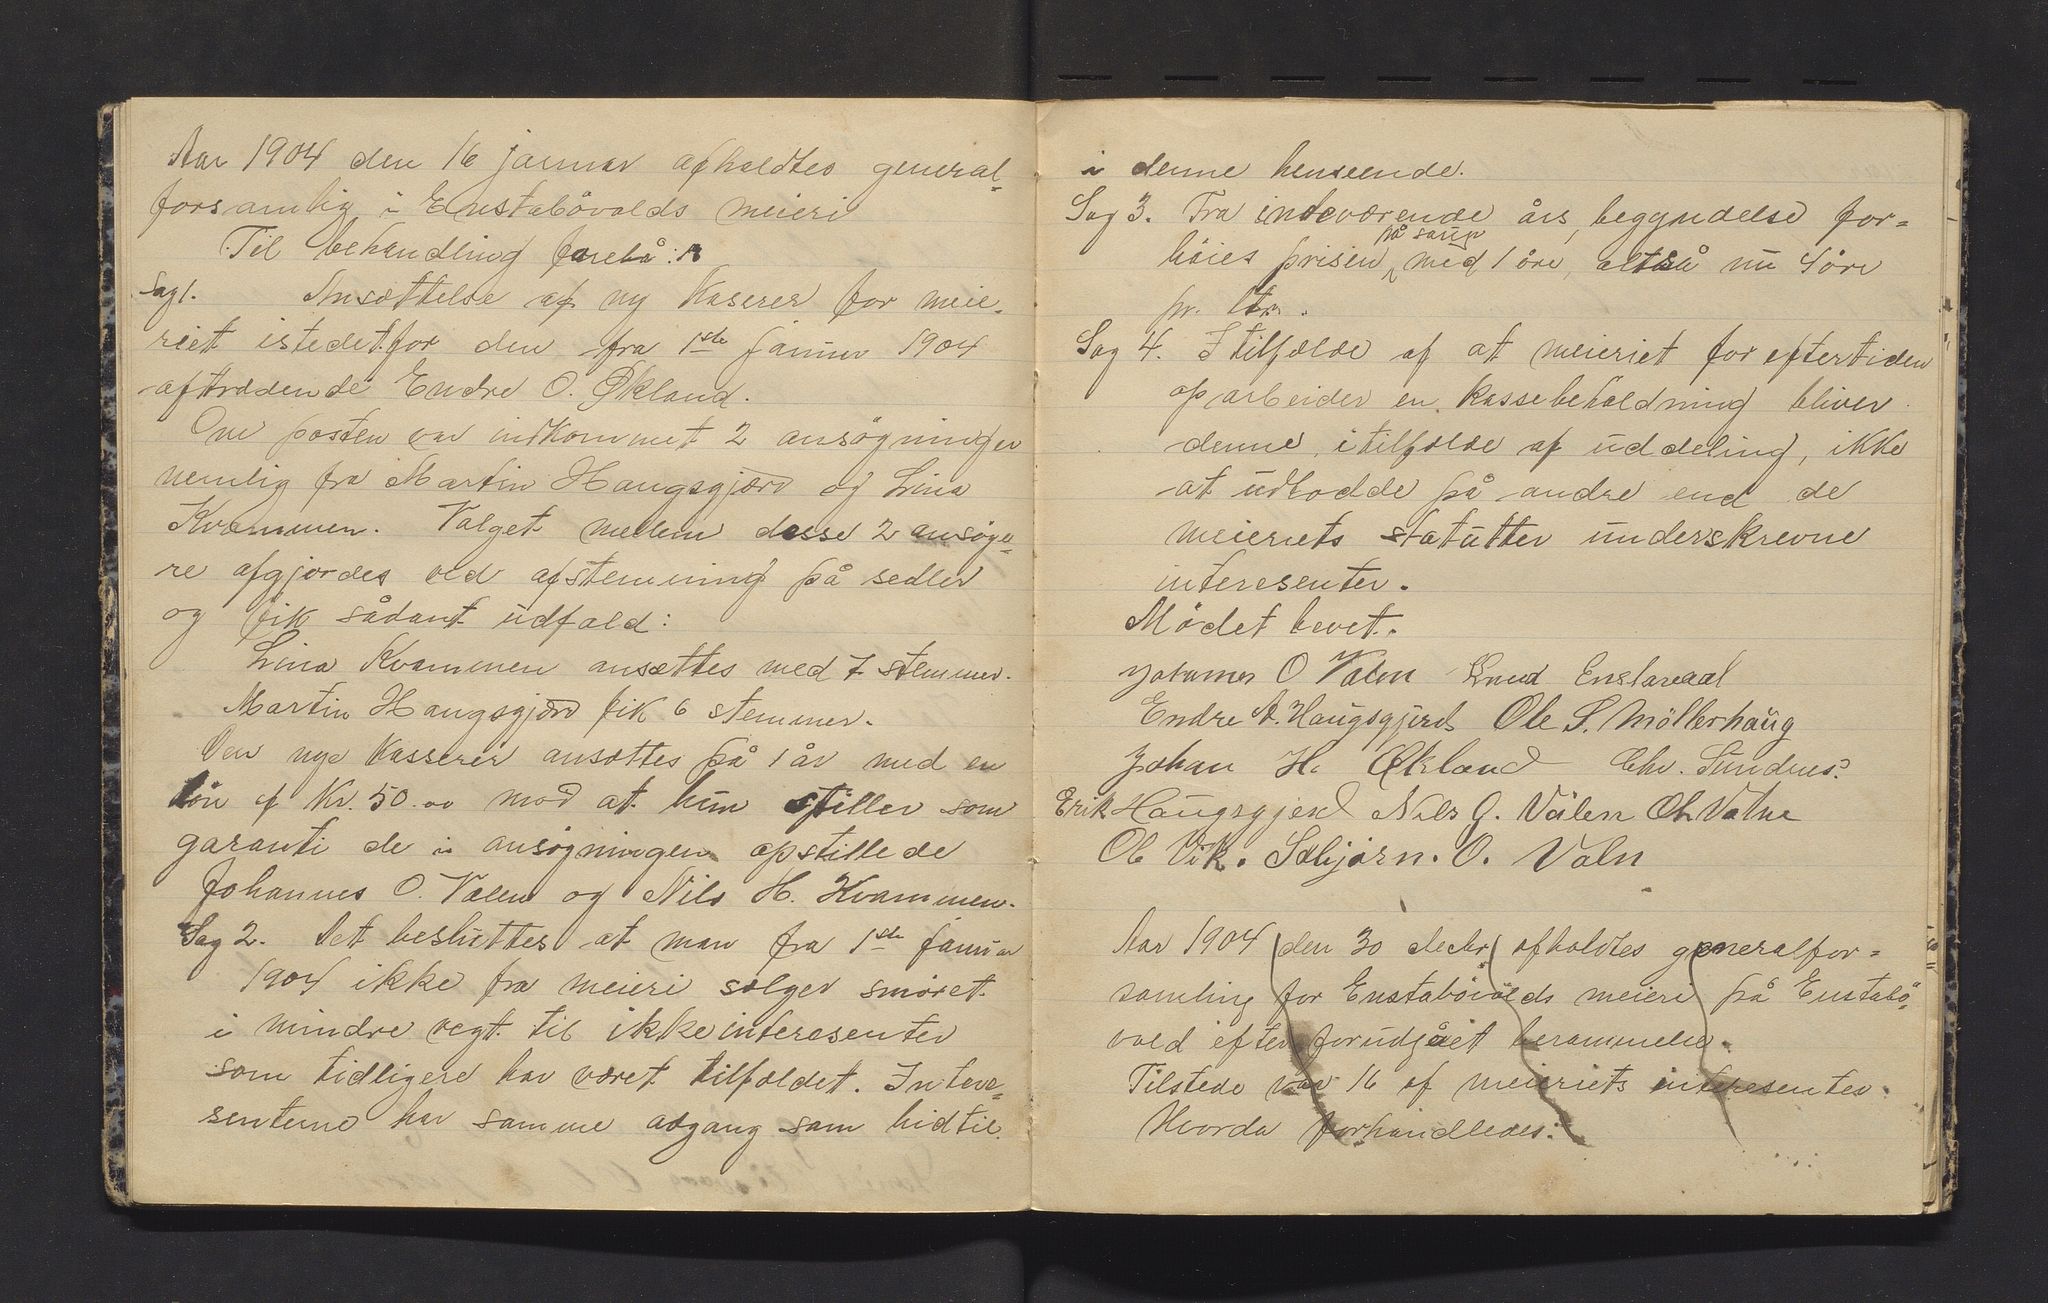 Aar 1904 den 16 januar afholdtes general-
forsamlig i Enstabövolds meieri
Til behandling forelå:
Sag 1. Ansættelse af ny Kaserer for meie-
riet istedetfor den fra 1ste januar 1904
aftrædende Endre O. Økland.
Om posten var indkommet 2 ansøgninger
nemlig fra Martin Haugsgjærd og Lina
Kvammen. Valget mellem desse 2 ansøge-
re afgjordes ved afstemning på sedler
og fik sådant udfald:
Lina Kvammen ansættes med 7 stemmer.
Martin Haugsgjærd fik 6 stemmer.
Den nye Kasserer ansættes på 1 år med en
løn af Kr. 50.00 mod at hun stiller som
garanti de i ansøgningen opstillede
Johannes O. Valen og Nils H. Kvammen.
Sag 2. Det besluttes at man fra 1ste januar
1904 ikke fra meieri sælger smöret
i mindre vegt til ikkeinteresenter
som tidligere har været tilfældet. Intere-
senterne har samme adgang som hidtil
i denne henseende.
Sag 3. Fra indeværende års begyndelse for-
höies prisen på saup med 1 öre, altså nu 4 öre
pr. ltr.
Sag 4. I tilfælde af at meieriet for eftertiden
oparbeider en kassebeholdning bliver
denne, i tilfælde af uddeling, ikke
at udlodde på andre end de
meieriets statutter underskrevne
interesenter.
Mödet hevet.
Johannes O Valen Knud Enstavold
Endre A. Haugsgjerd Ole S. Möllerhaug
Johan H. Økland Chr. Sundnes
Erik Haugsgjerd Nils G. Välen Ol Valne
Ol Vik. Asbjörn. O. Valn
Aar 1904 den 30 decbr afholdtes generalfor-
samling for Enstabövolds meieri på Enstabö-
vold efter forudgået berammelse.
Tilstede var 16 af meieriets interesenter.
Hvorda forhandledes: